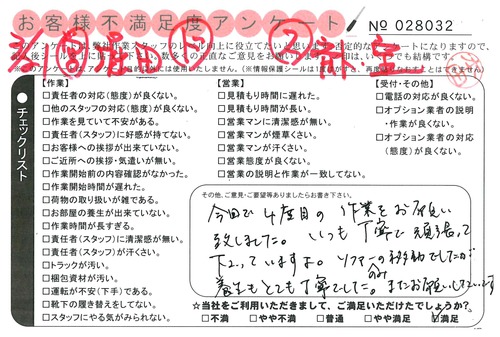 お客様不満足度アンケート
№ 028032
このアンケートは、弊社作業スタッフのレベル向上に役立てたいと思います。
チェックリスト
【作業】
□責任者の対応(態度)が良くない。
□他のスタッフの対応(態度)が良くない。
□作業を見ていて不安がある。
□責任者(スタッフ)に好感が持てない。
□お客様への挨拶が出来ていない。
□ご近所への挨拶・気遣いが無い。
□作業開始前の内容確認がなかった。
□作業開始時間が遅れた。
□荷物の取り扱いが雑である。
□お部屋の養生が出来ていない。
□作業時間が長すぎる。
□責任者(スタッフ)に清潔感が無い。
□責任者(スタッフ)が汗くさい。
□トラックが汚い。
□梱包資材が汚い。
□運転が不安(下手)である。
□靴下の履き替えをしてない。
□スタッフにやる気がみられない。
【営業】
□見積もり時間に遅れた。
□見積もり時間が長い。
□営業マンに清潔感が無い。
□営業マンが煙草くさい。
□営業マンが汗くさい。
□営業態度が良くない。
□営業の説明と作業が一致してない。
【受付・その他】
□電話の対応が良くない。
□オプション業者の説明
・作業が良くない。
□オプション業者の対応
(態度)が良くない。
その他、ご意見・ご要望等ありましたらお書き下さい。
今回で4度目の作業をお願い
致しました。いつも丁寧で頑張って
下さっていますよ。ソファーの移動でしたが
のみ
養生もとても丁寧でした。またお願いしたいです
☆当社をご利用いただきまして、ご満足いただけたでしょうか?
□不満 □やや不満 □普通 □やや満足 ☑満足